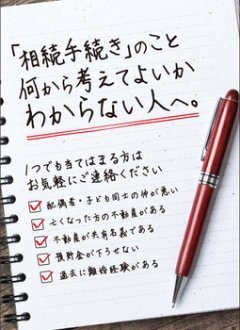 「相続手続き」のこと
何から考えてよいか
わからない人へ。
1つでも当てはまる方は
お気軽にご連絡ください
配偶者・子ども同士の仲が悪い
亡くなった方の不動産がある
不動産が共有名義である
預貯金が下ろせない
過去に離婚経験がある